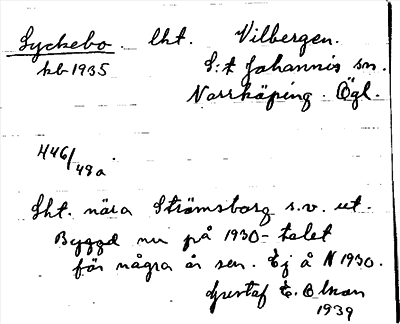 Lyckebo. lht. Vilbergen.
kb 1935 S:t Johannis sn.
Norrköping. Ögl.
446/48a.
Lht. nära Strömsborg s.v. ut.
Byggd nu på 1930-talet
för några år sen. Ej å N 1930.
Gustaf E. Olson
1939